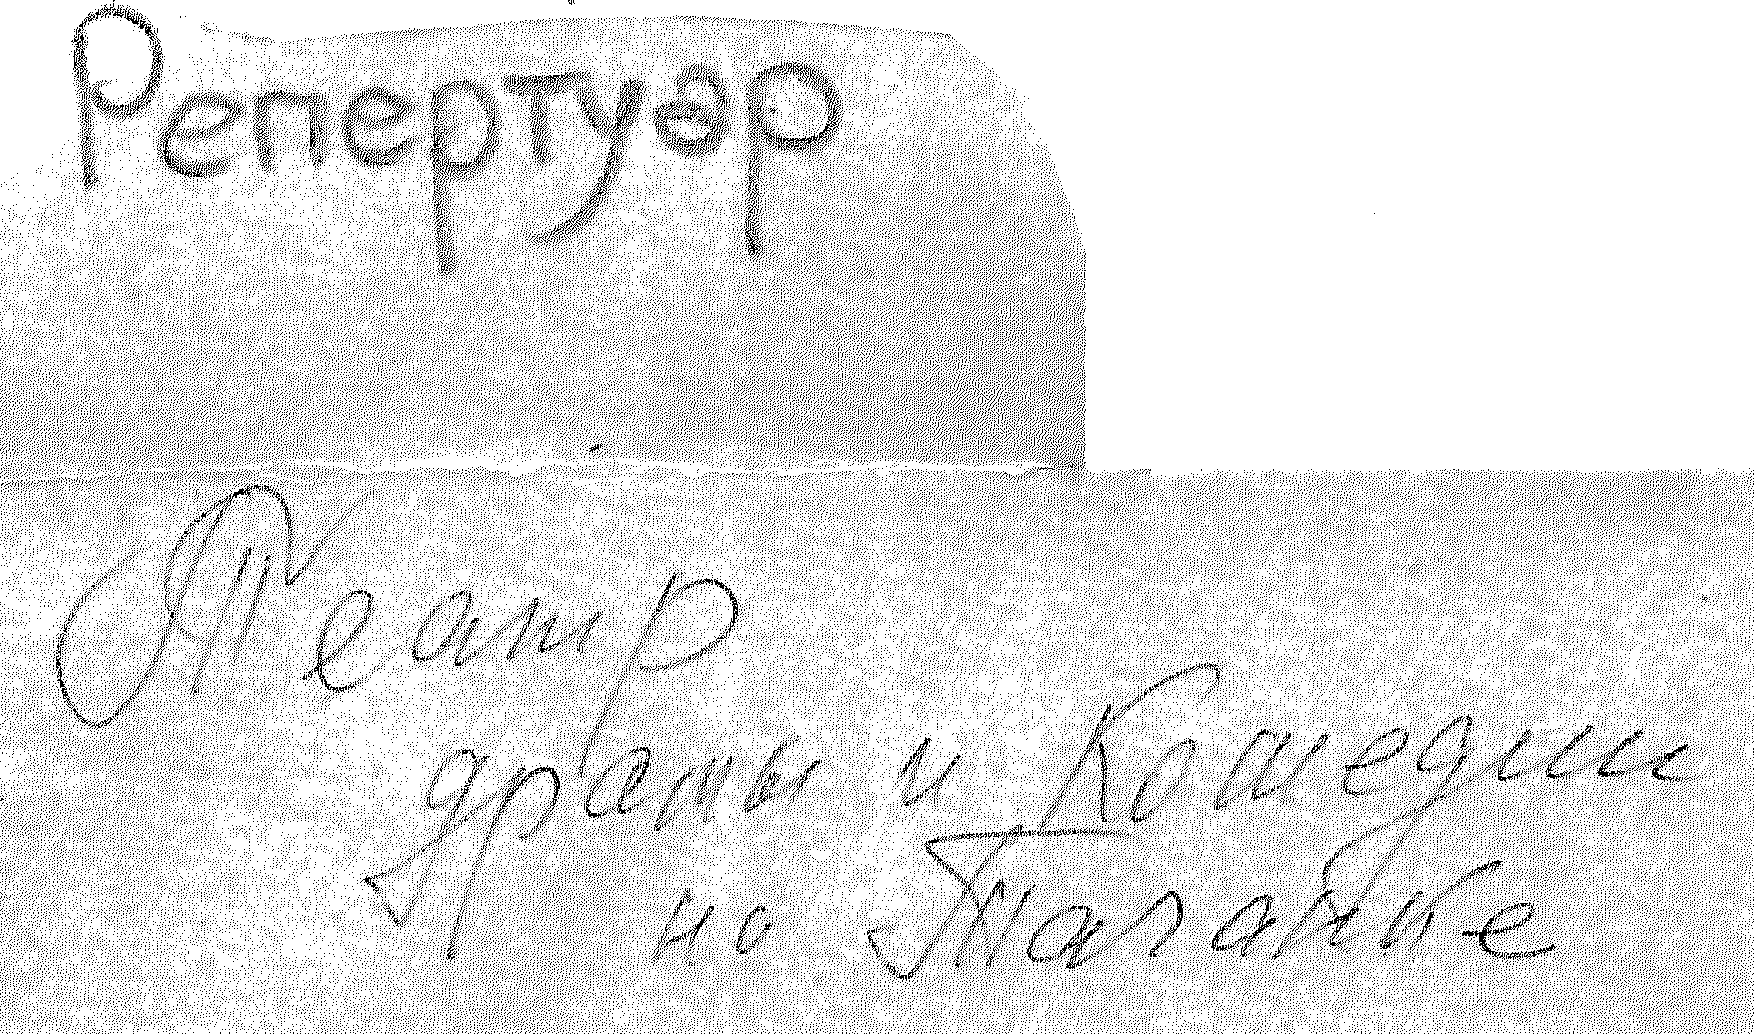 Репертуар
Театр
драмы и Комедии
на Таганке